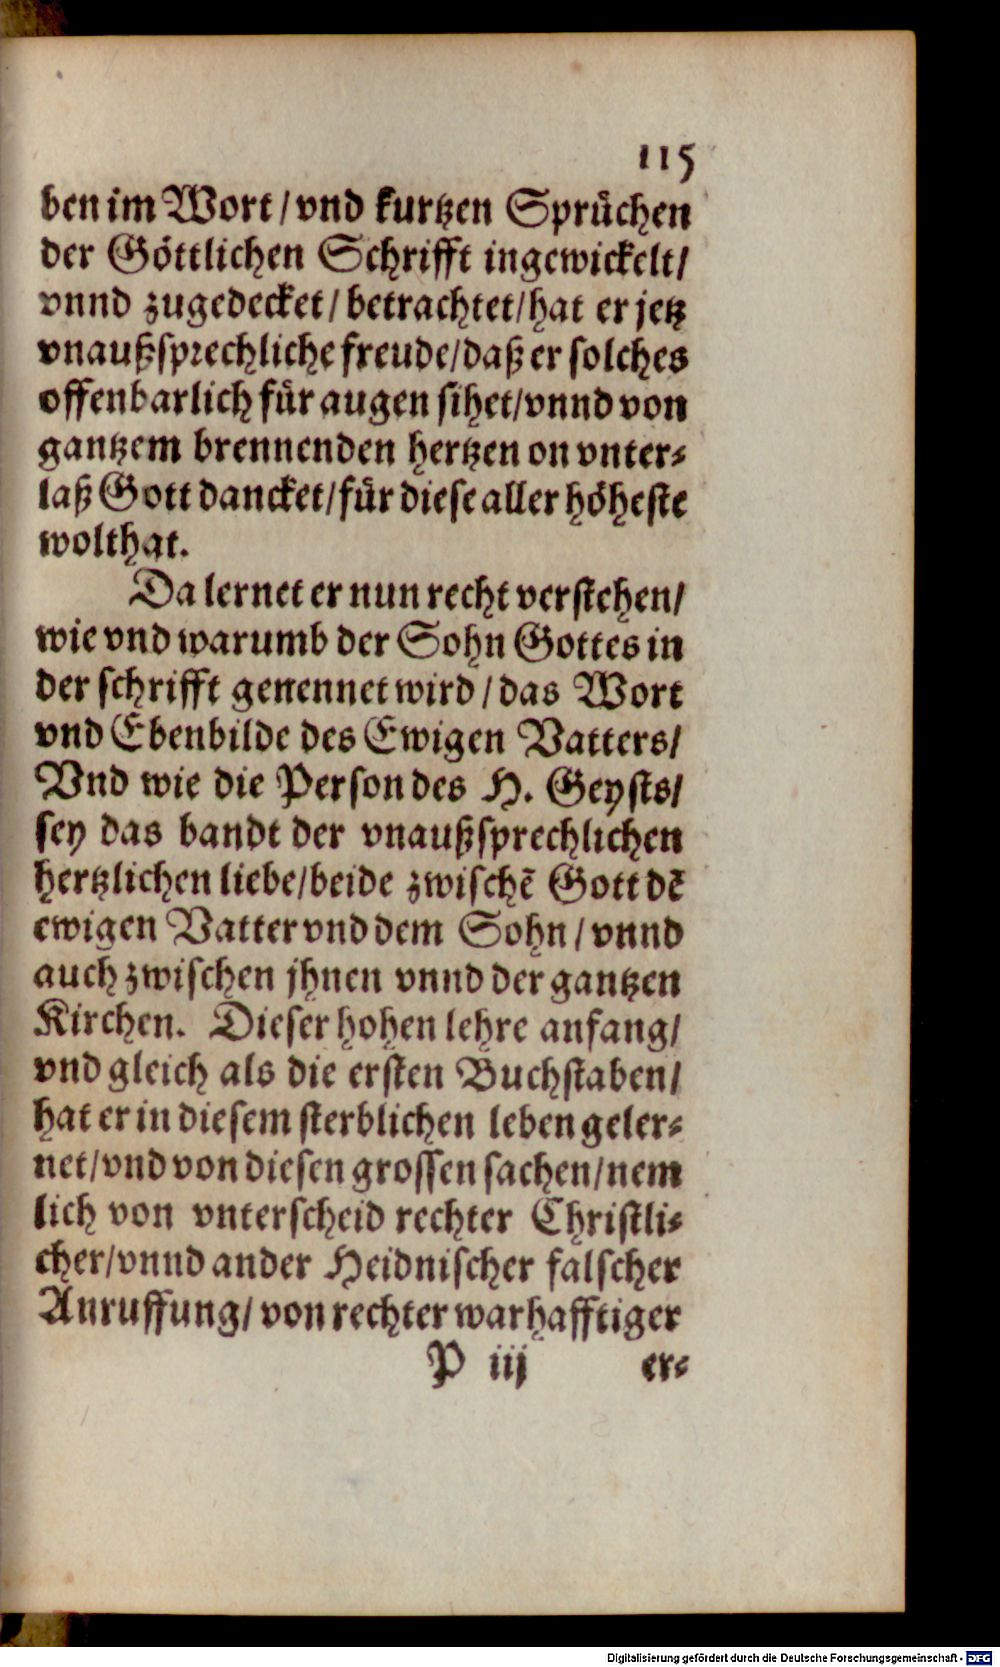 115
ben im Wort/vnd kurtzen Sprüchen
der Göttlichen Schrifft ingewickelt/
vnnd zugedecket/betrachtet/hat er jetz
vnaußsprechliche freude/daß er solches
offenbarlich für augen sihet/vnnd von
gantzem brennenden hertzen on vnter-
laß Gott dancket/für diese aller höheste
wolthat.
Da lernet er nun recht verstehen/
wie vnd warumb der Sohn Gottes in
der schrifft genennet wird/das Wort
vnd Ebenbilde des Ewigen Vatters/
Vnd wie die Person des H. Geysts/
sey das bandt der vnaußsprechlichen
hertzlichen liebe/beide zwischē Gott dē
ewigen Vatter vnd dem Sohn/vnnd
auch zwischen jhnen vnnd der gantzen
Kirchen. Dieser hohen lehre anfang/
vnd gleich als die ersten Buchstaben/
hat er in diesem sterblichen leben geler-
net/vnd von diesen grossen sachen/nem
lich von vnterscheid rechter Christli-
cher/vnnd ander Heidnischer falscher
Anruffung/von rechter warhafftiger
P iij er-
Digitalisierung gefördert durch die Deutsche Forschungsgemeinschaft - DFG